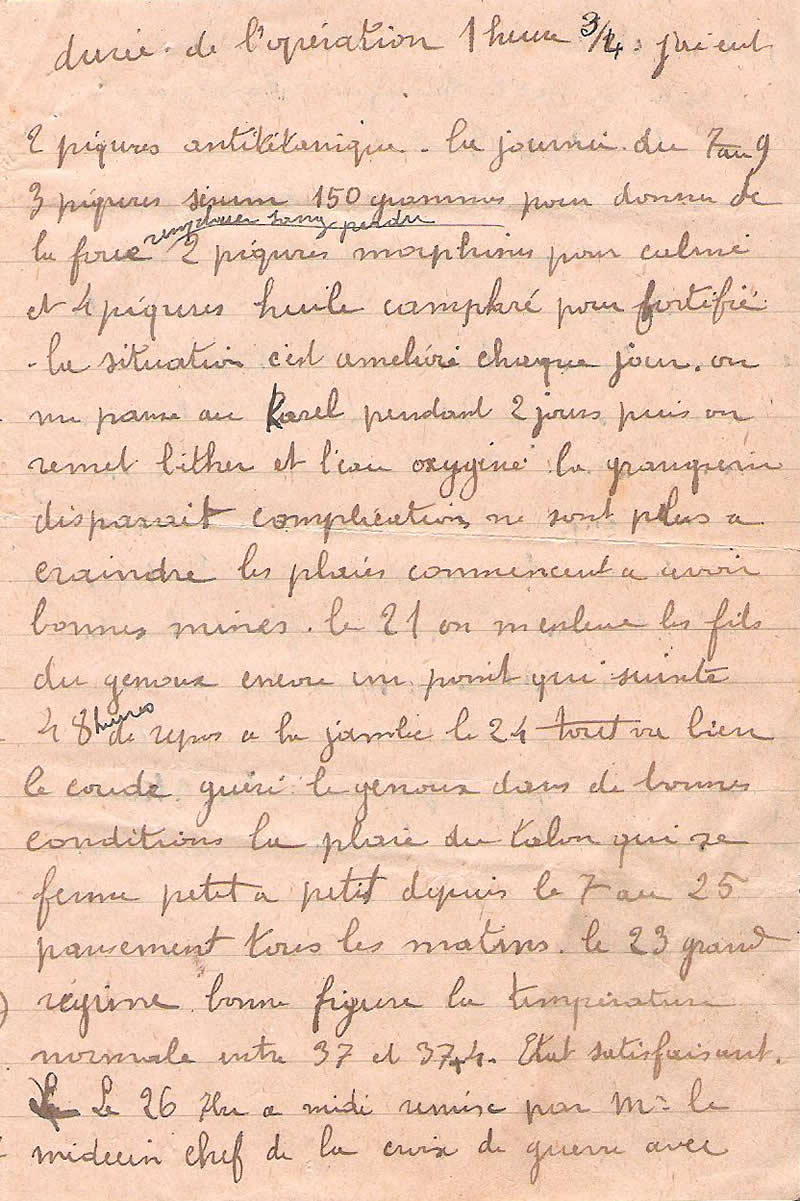 durée de l'opération 1 heure 3/4. j'ai eut
2 piqures antitétanique. la journée du 7 au 9
3 piqures sérum 150 grammes pour donner de
remplacer sang perdu
la force 2 piqures morphines pour calmé
et 4 piqures huile camphré pour fortifié
- la situation c'est amélioré chaque jour. on
me panse au Karel pendant 2 jours puis on
remet l'ether et l'eau oxygéné la granquerin
disparait complications ne sont plus a
craindre les plaies commencent a avoir
bonnes mines. le 21 on m'enleve les fils
du genoux encore un point qui suinte
48 heures de repos a la jambe le 24 tout va bien
le coude guéri le genoux dans de bonnes
conditions la plaie du talon qui se
ferme petit a petit depuis le 7 au 25
pansement tous les matins. le 23 grand
régime bonne figure la température
normale entre 37 et 37,4. Etat satisfaisant.
Le 26 7bre a midi remise par Mr le
médecin chef de la croix de guerre avec